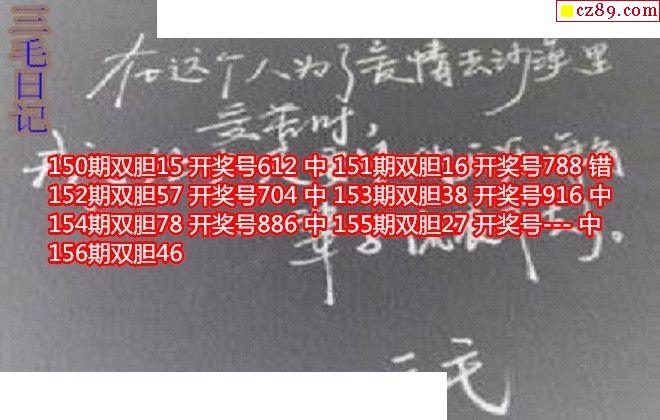 cz89.com
三毛日记
在这个人为了爱情去沙漠里
受苦时，
150期双胆15 开奖号612 中 151期双胆16 开奖号788 错
152期双胆57 开奖号704 中 153期双胆38 开奖号916 中
154期双胆78 开奖号886 中 155期双胆27 开奖号--- 中
156期双胆46
三毛